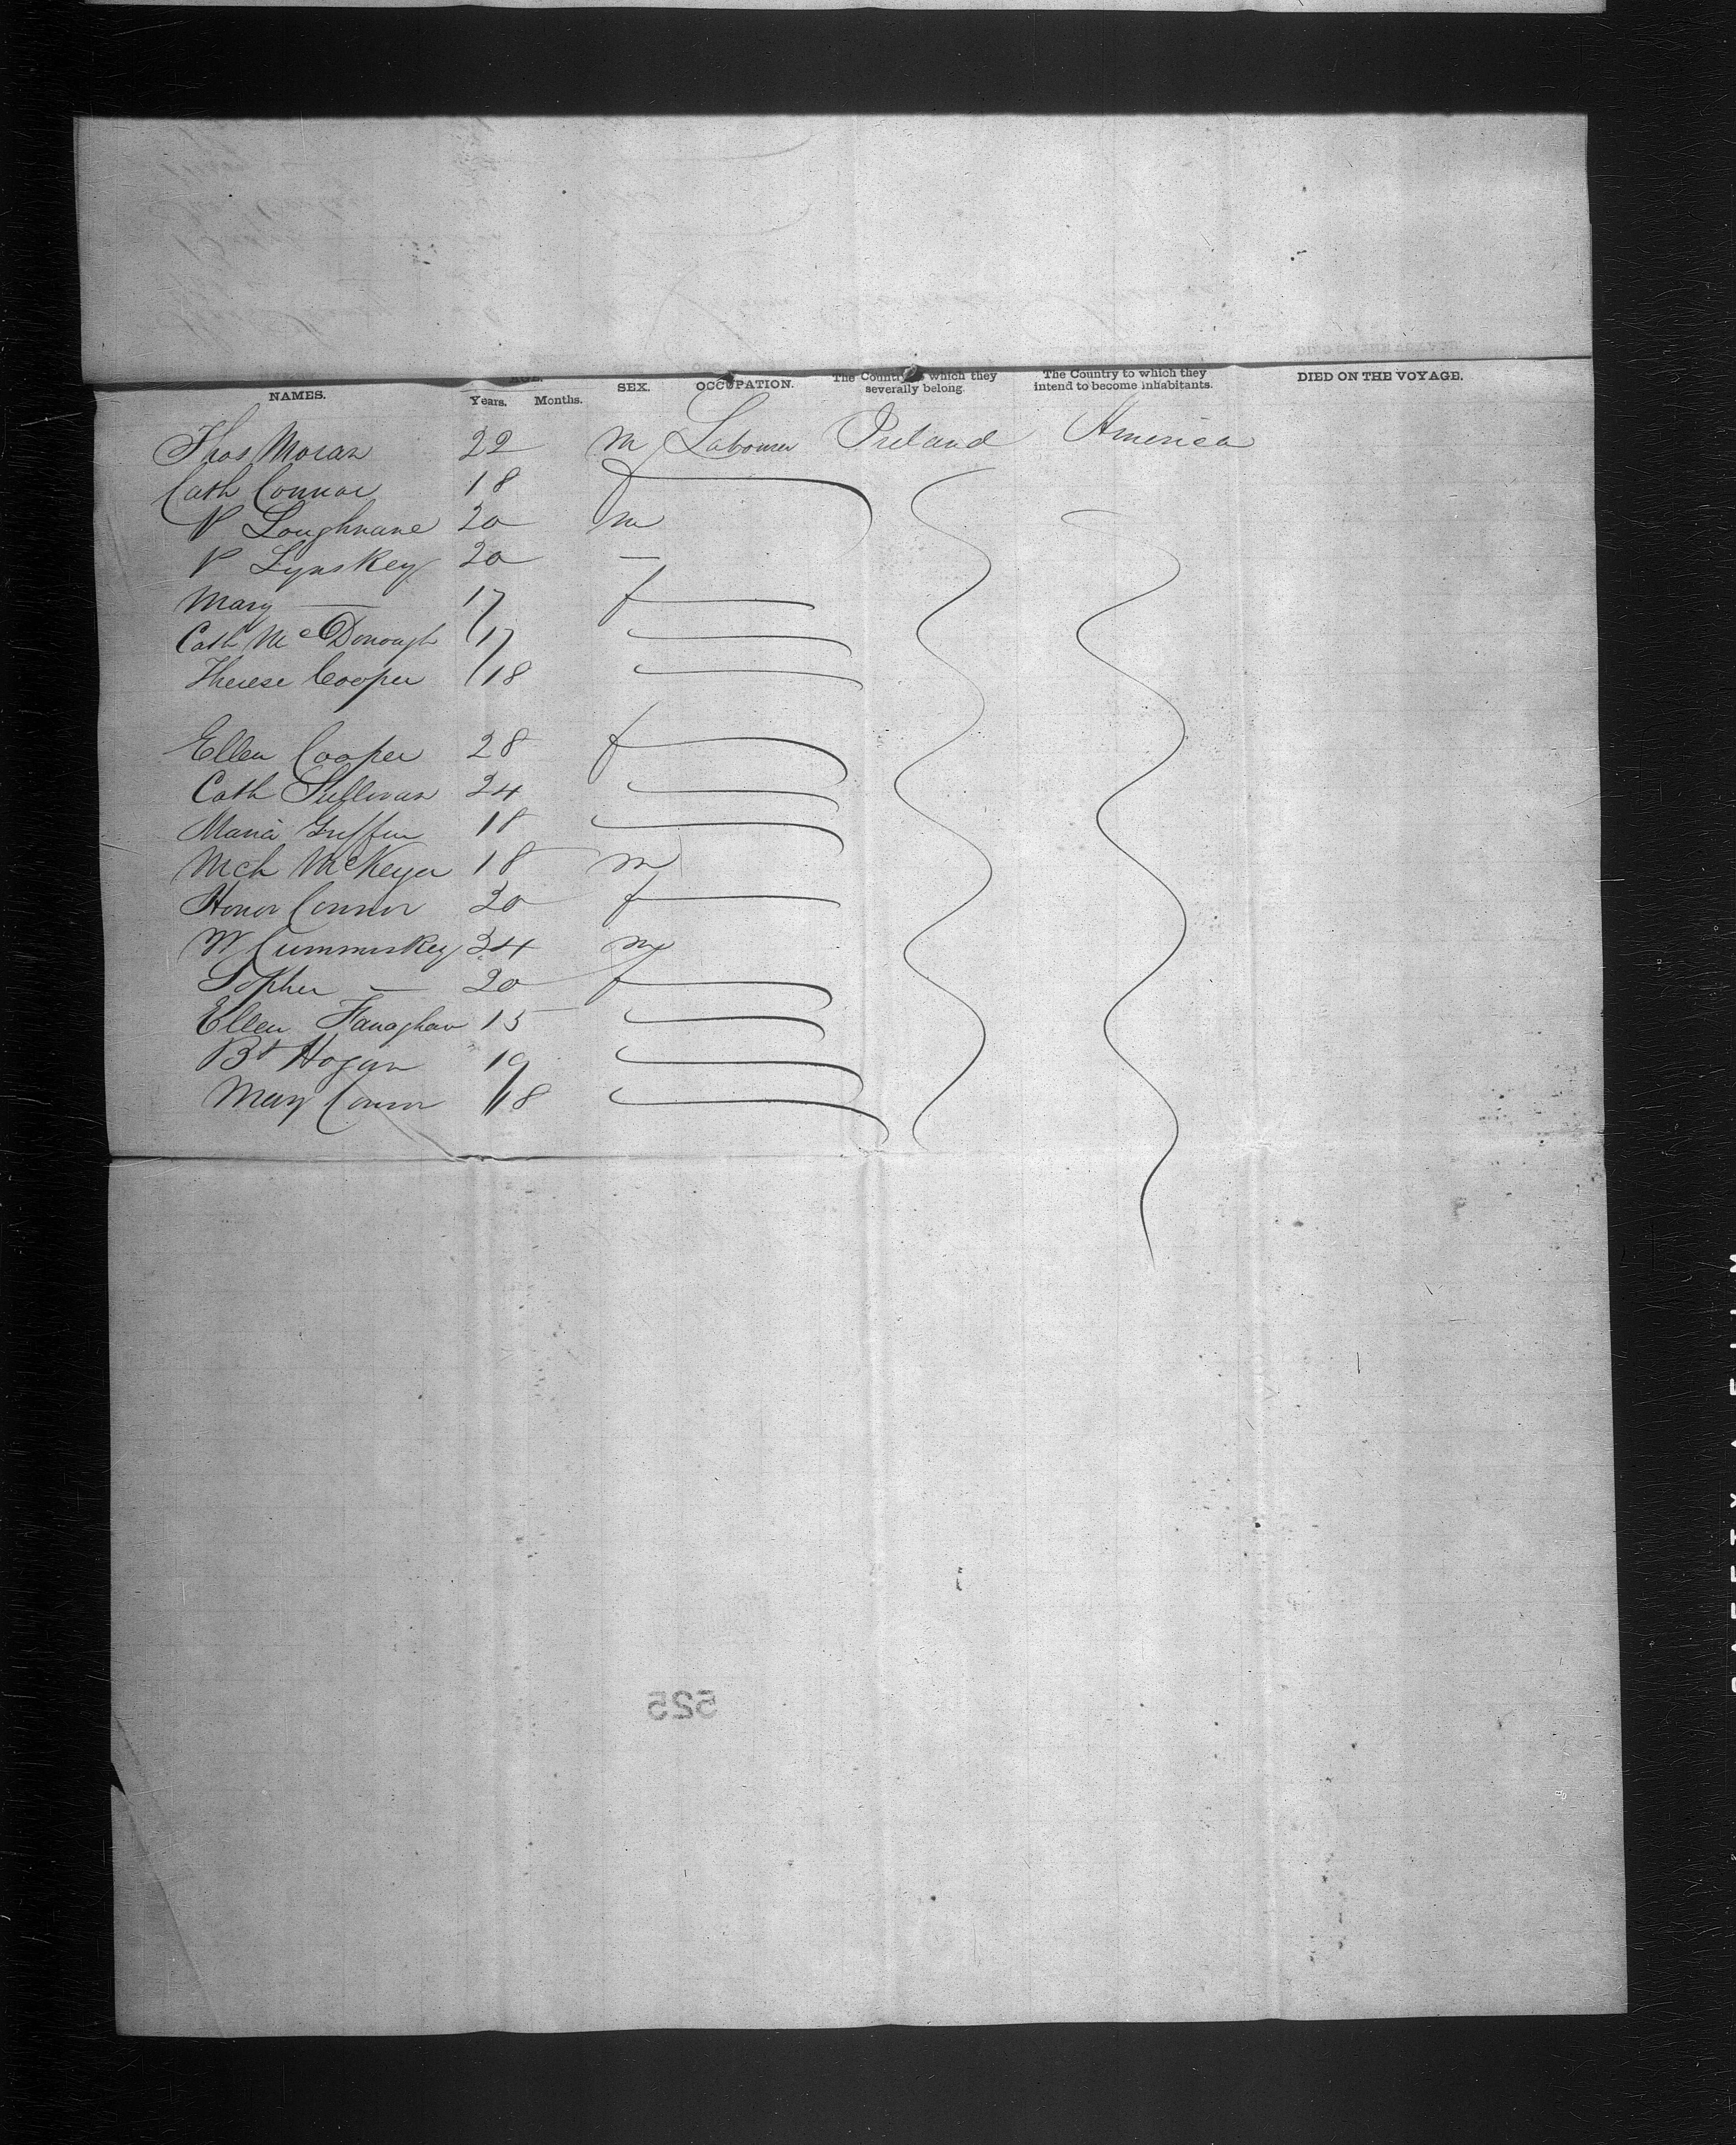 NAMES. AGE. Years. Months. SEX. OCCUPATION. The Country to which they severally belong. The Country to which they intend to become inhabitants. DIED ON THE VOYAGE.
Thos Moran 22 m Labourer Ireland America
Cath Connor 18 f
P Loughnane 20 m
P Lynskey 20 —
Mary — 17 f
Cath McDonough 17
Therese Cooper 18
Ellen Cooper 28 f
Cath Sullivan 24
Maria Griffin 18
Mch McKeyer 18 m
Honor Connor 20 f
W Cummuskey 24 m
Sopher — 20 f
Ellen Fanaghan 15
Bt Hogan 19
Mary Connor 18
525